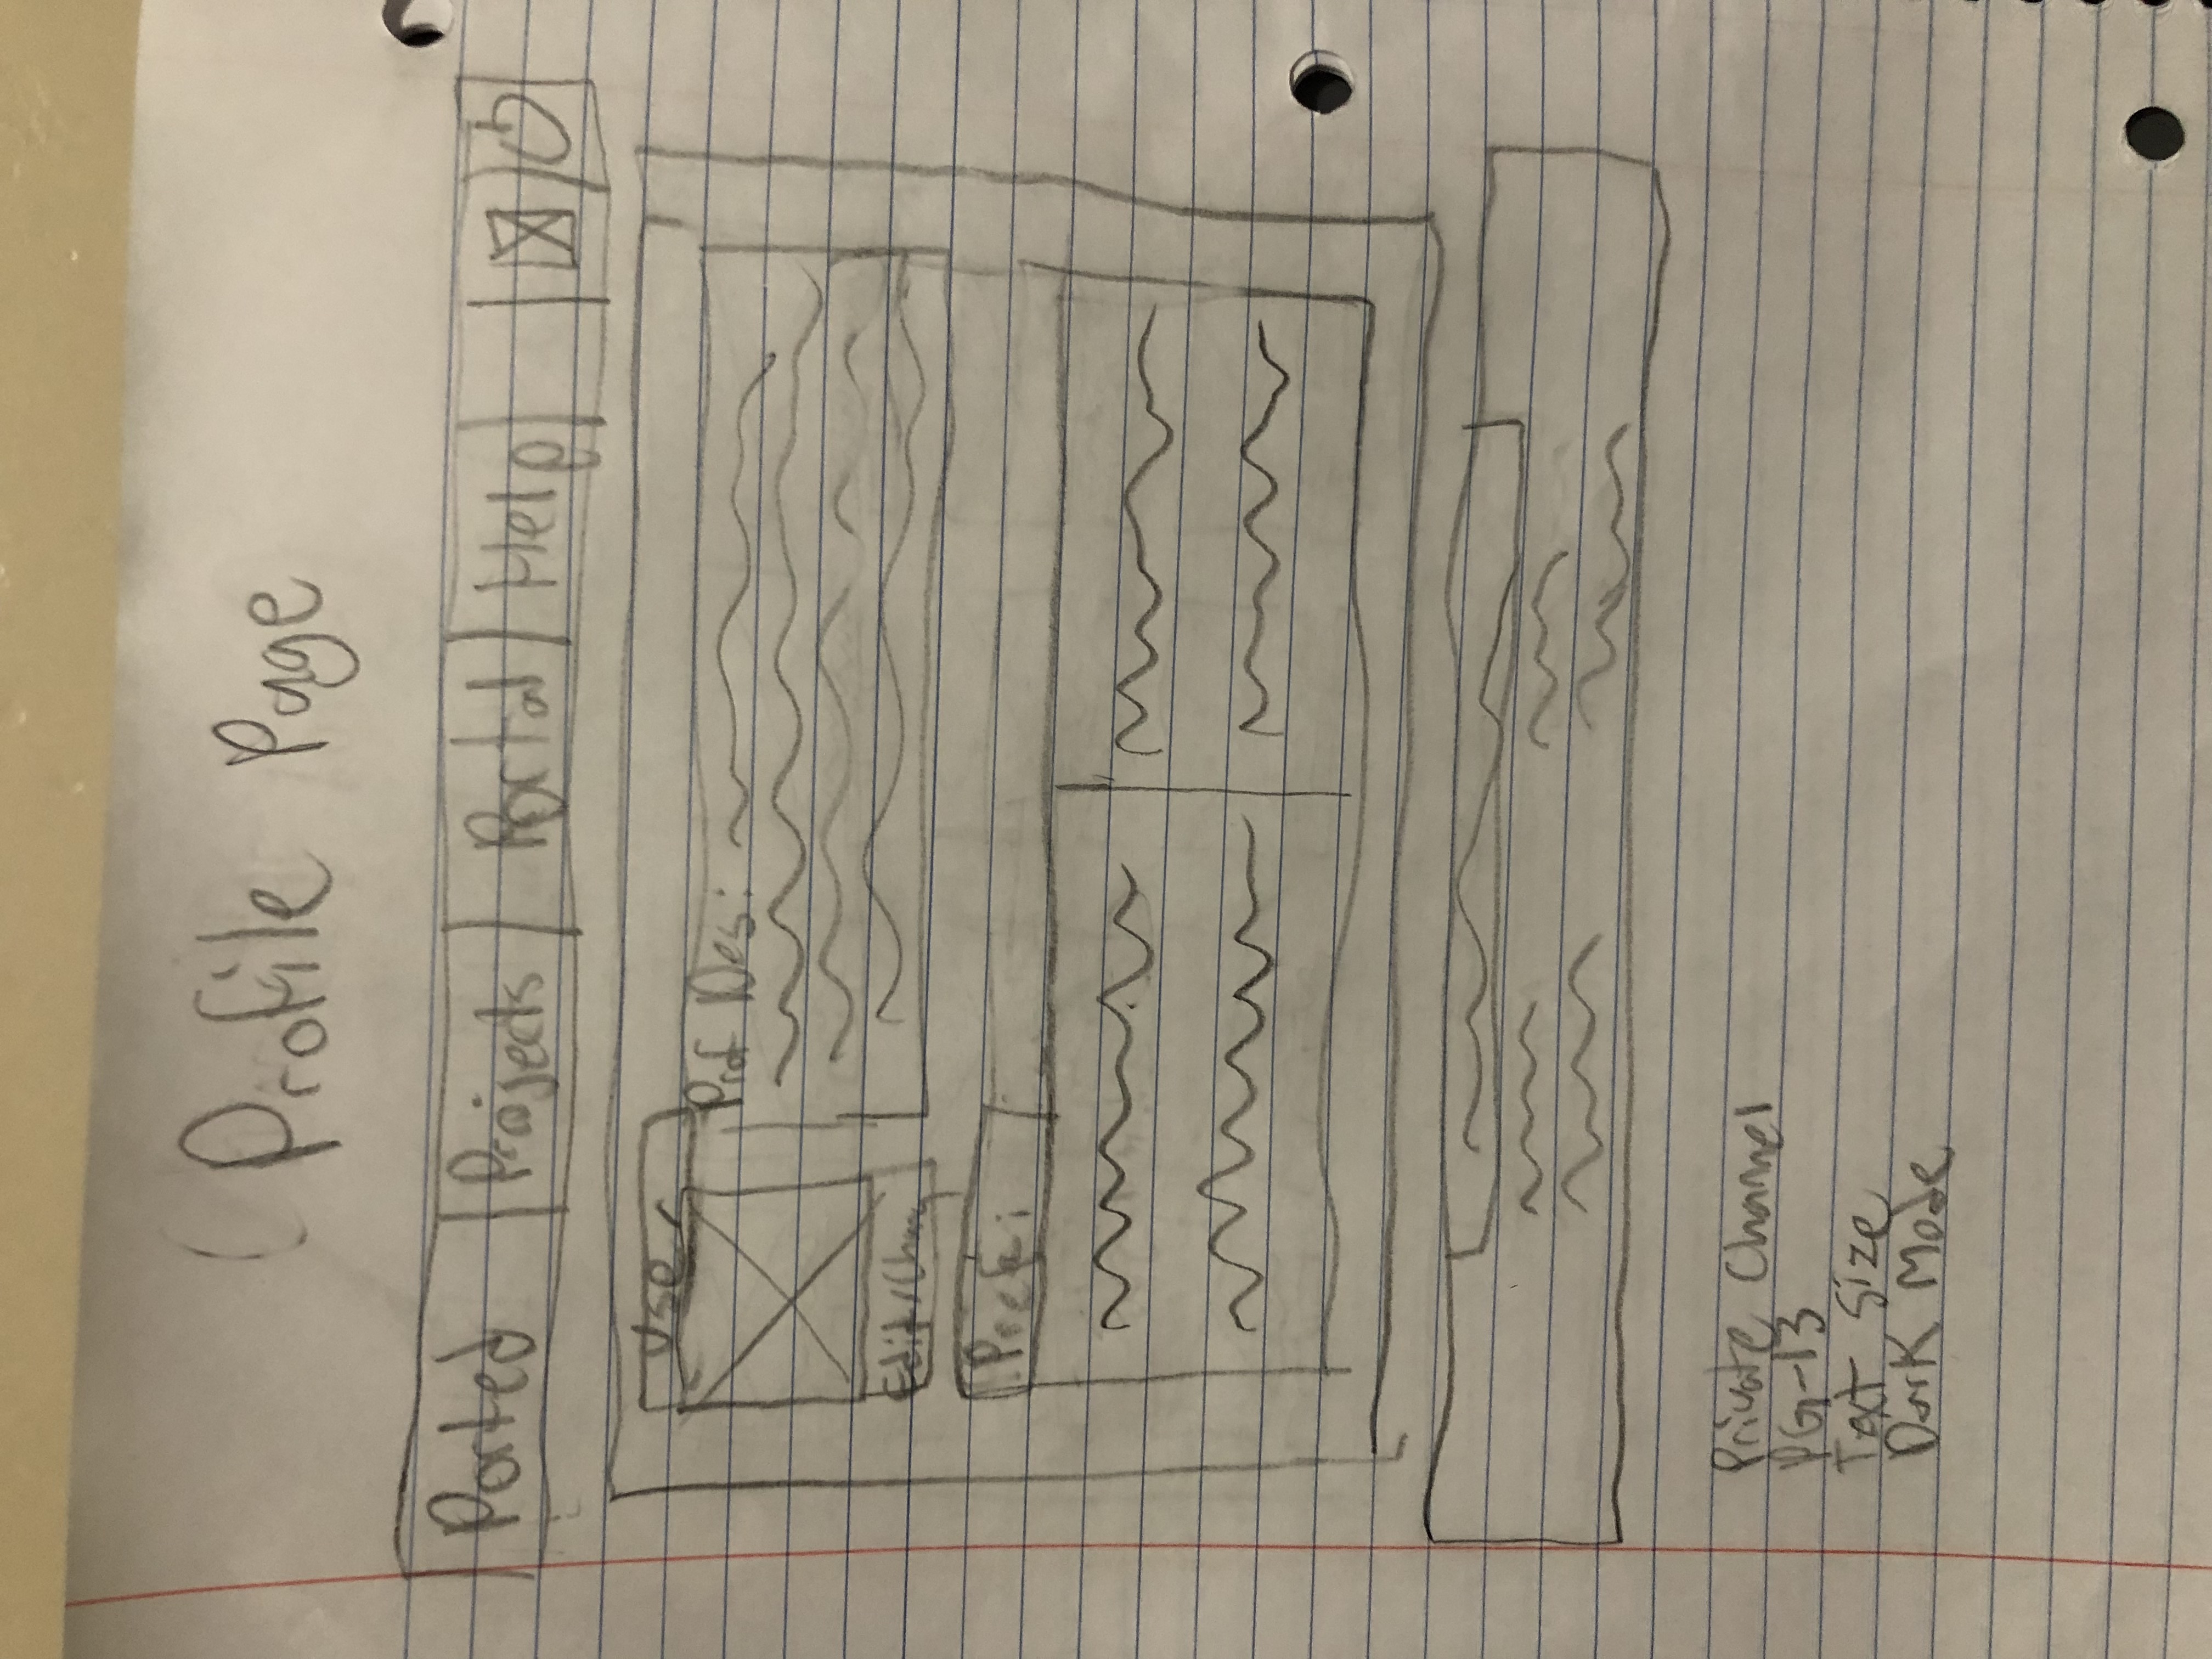 Profile Page
Ported Projects Portal Help
User
Prof Des:
Edit/Chang
Pref:
Private Channel
PG-13
Text Size
Dark Mode